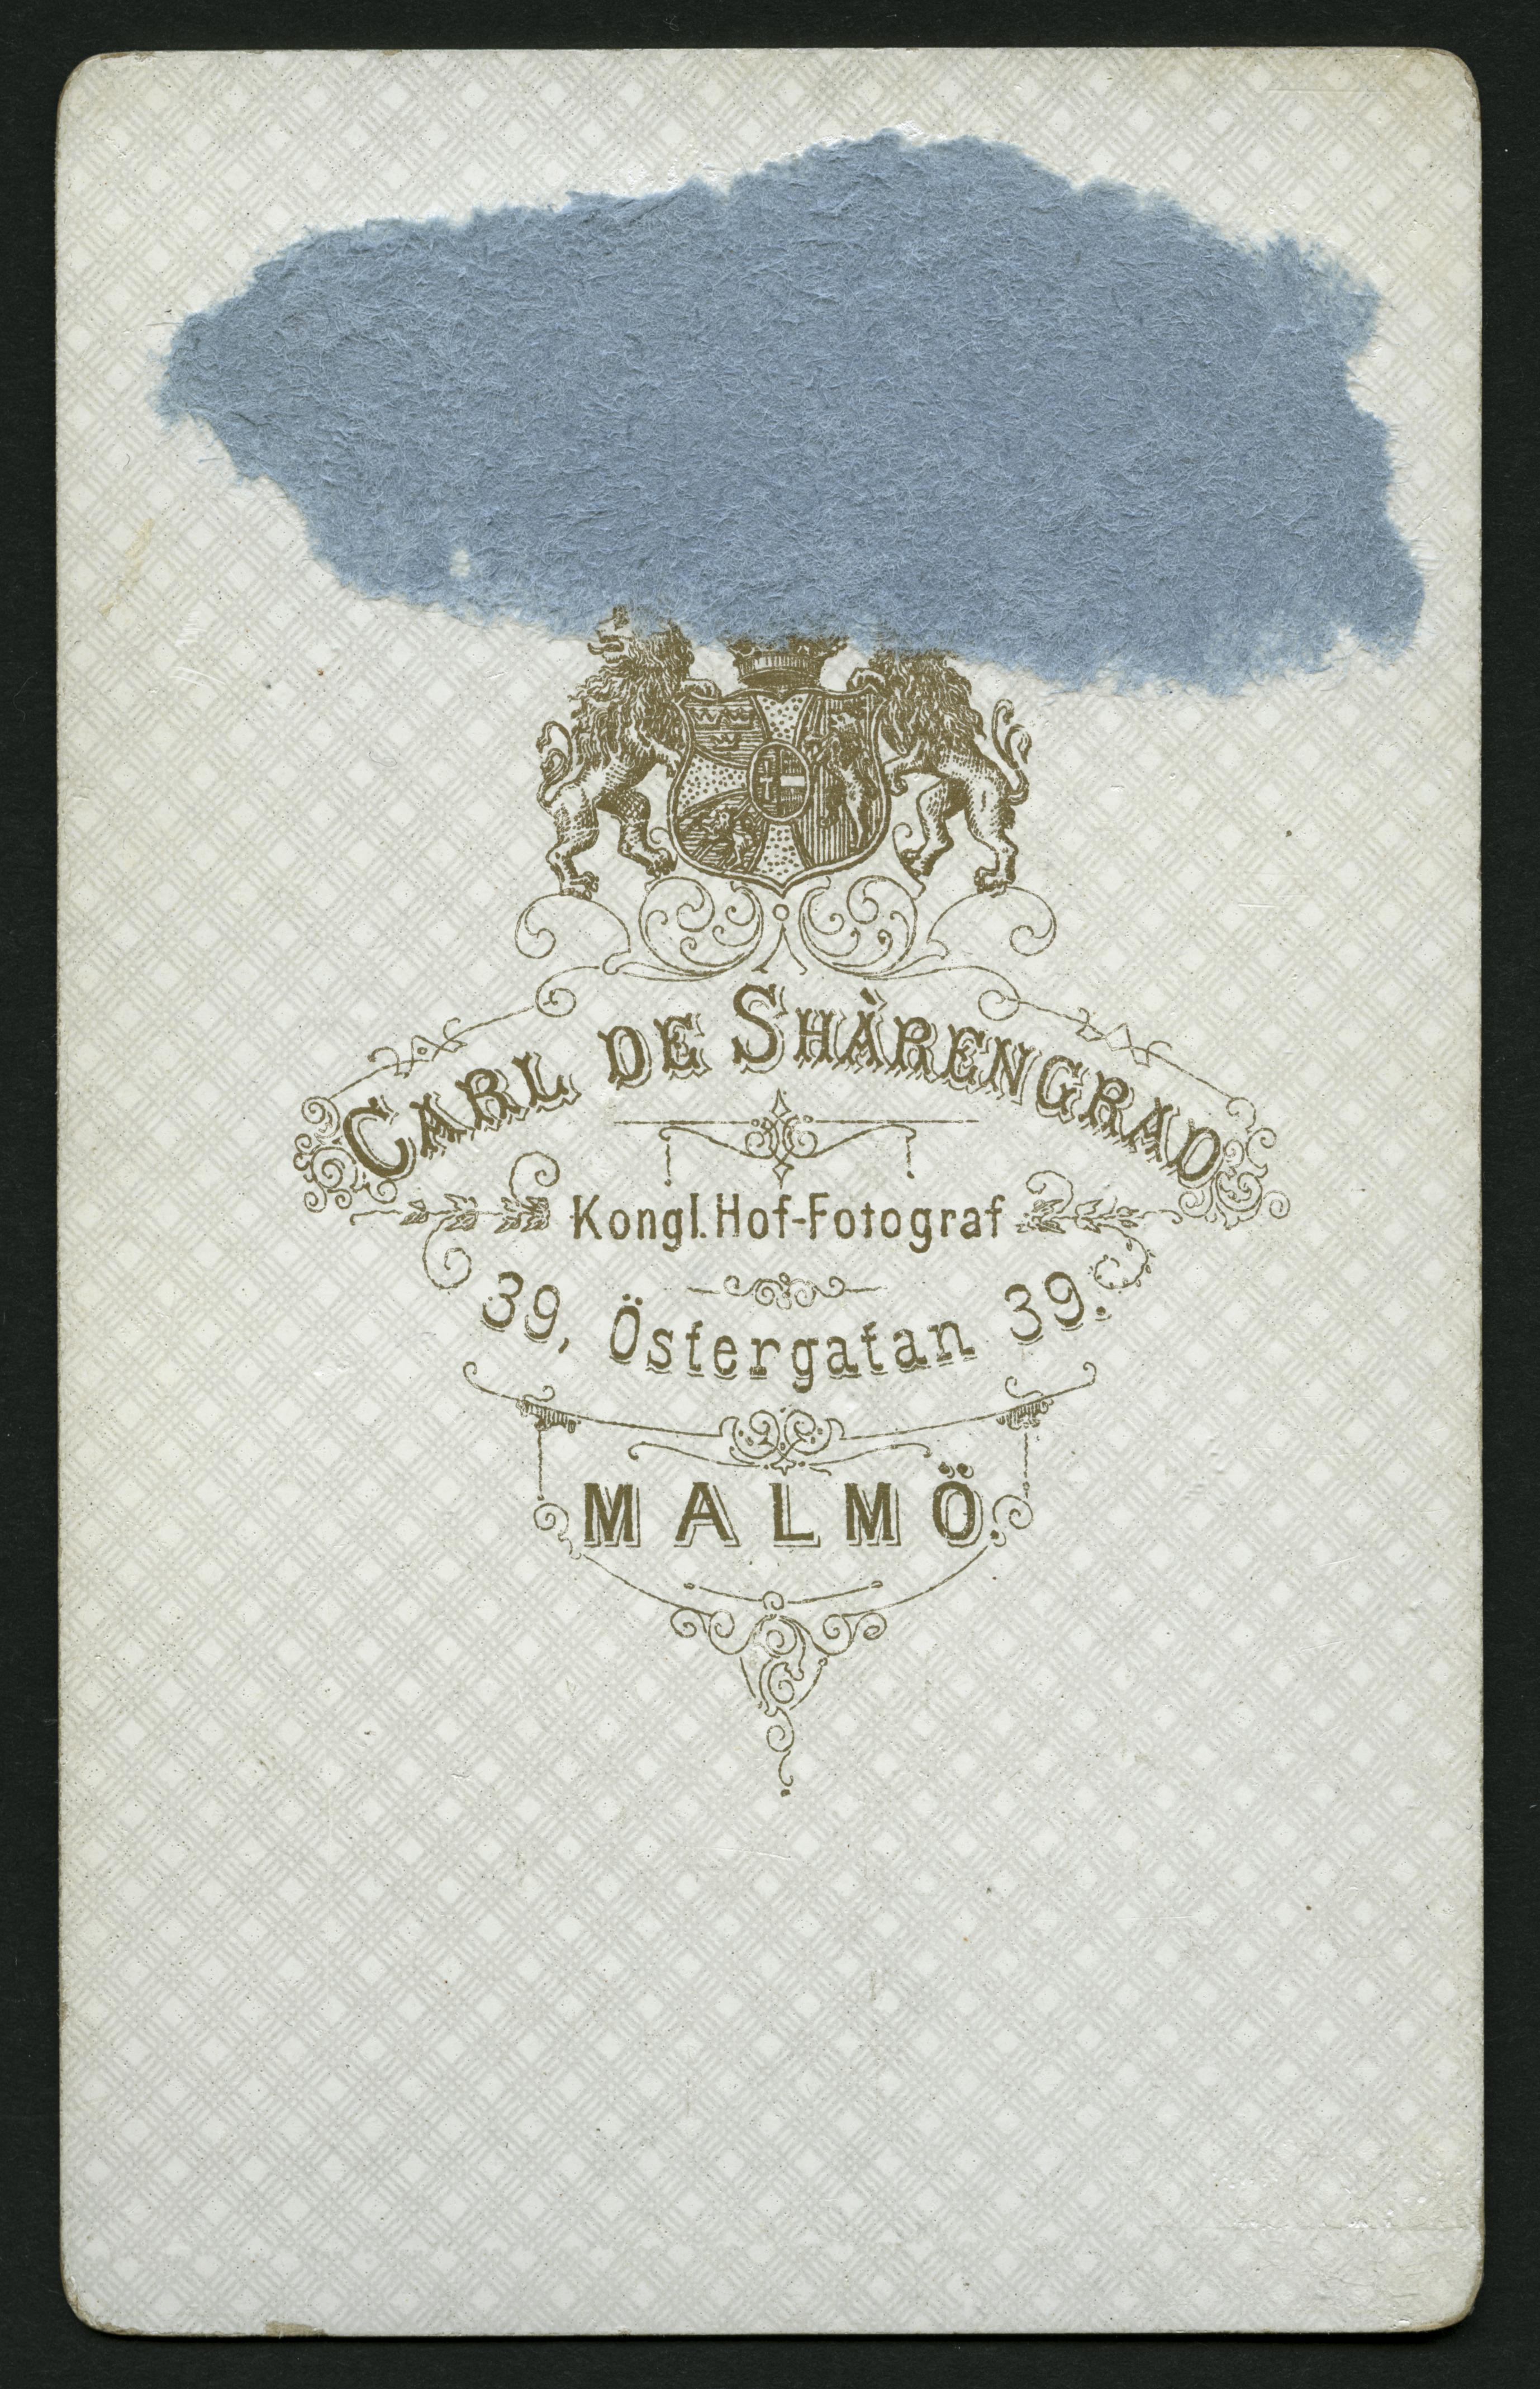 CARL DE SHÀRENGRAD
Kongl. Hof-Fotograf
39, Östergatan 39.
MALMÖ.